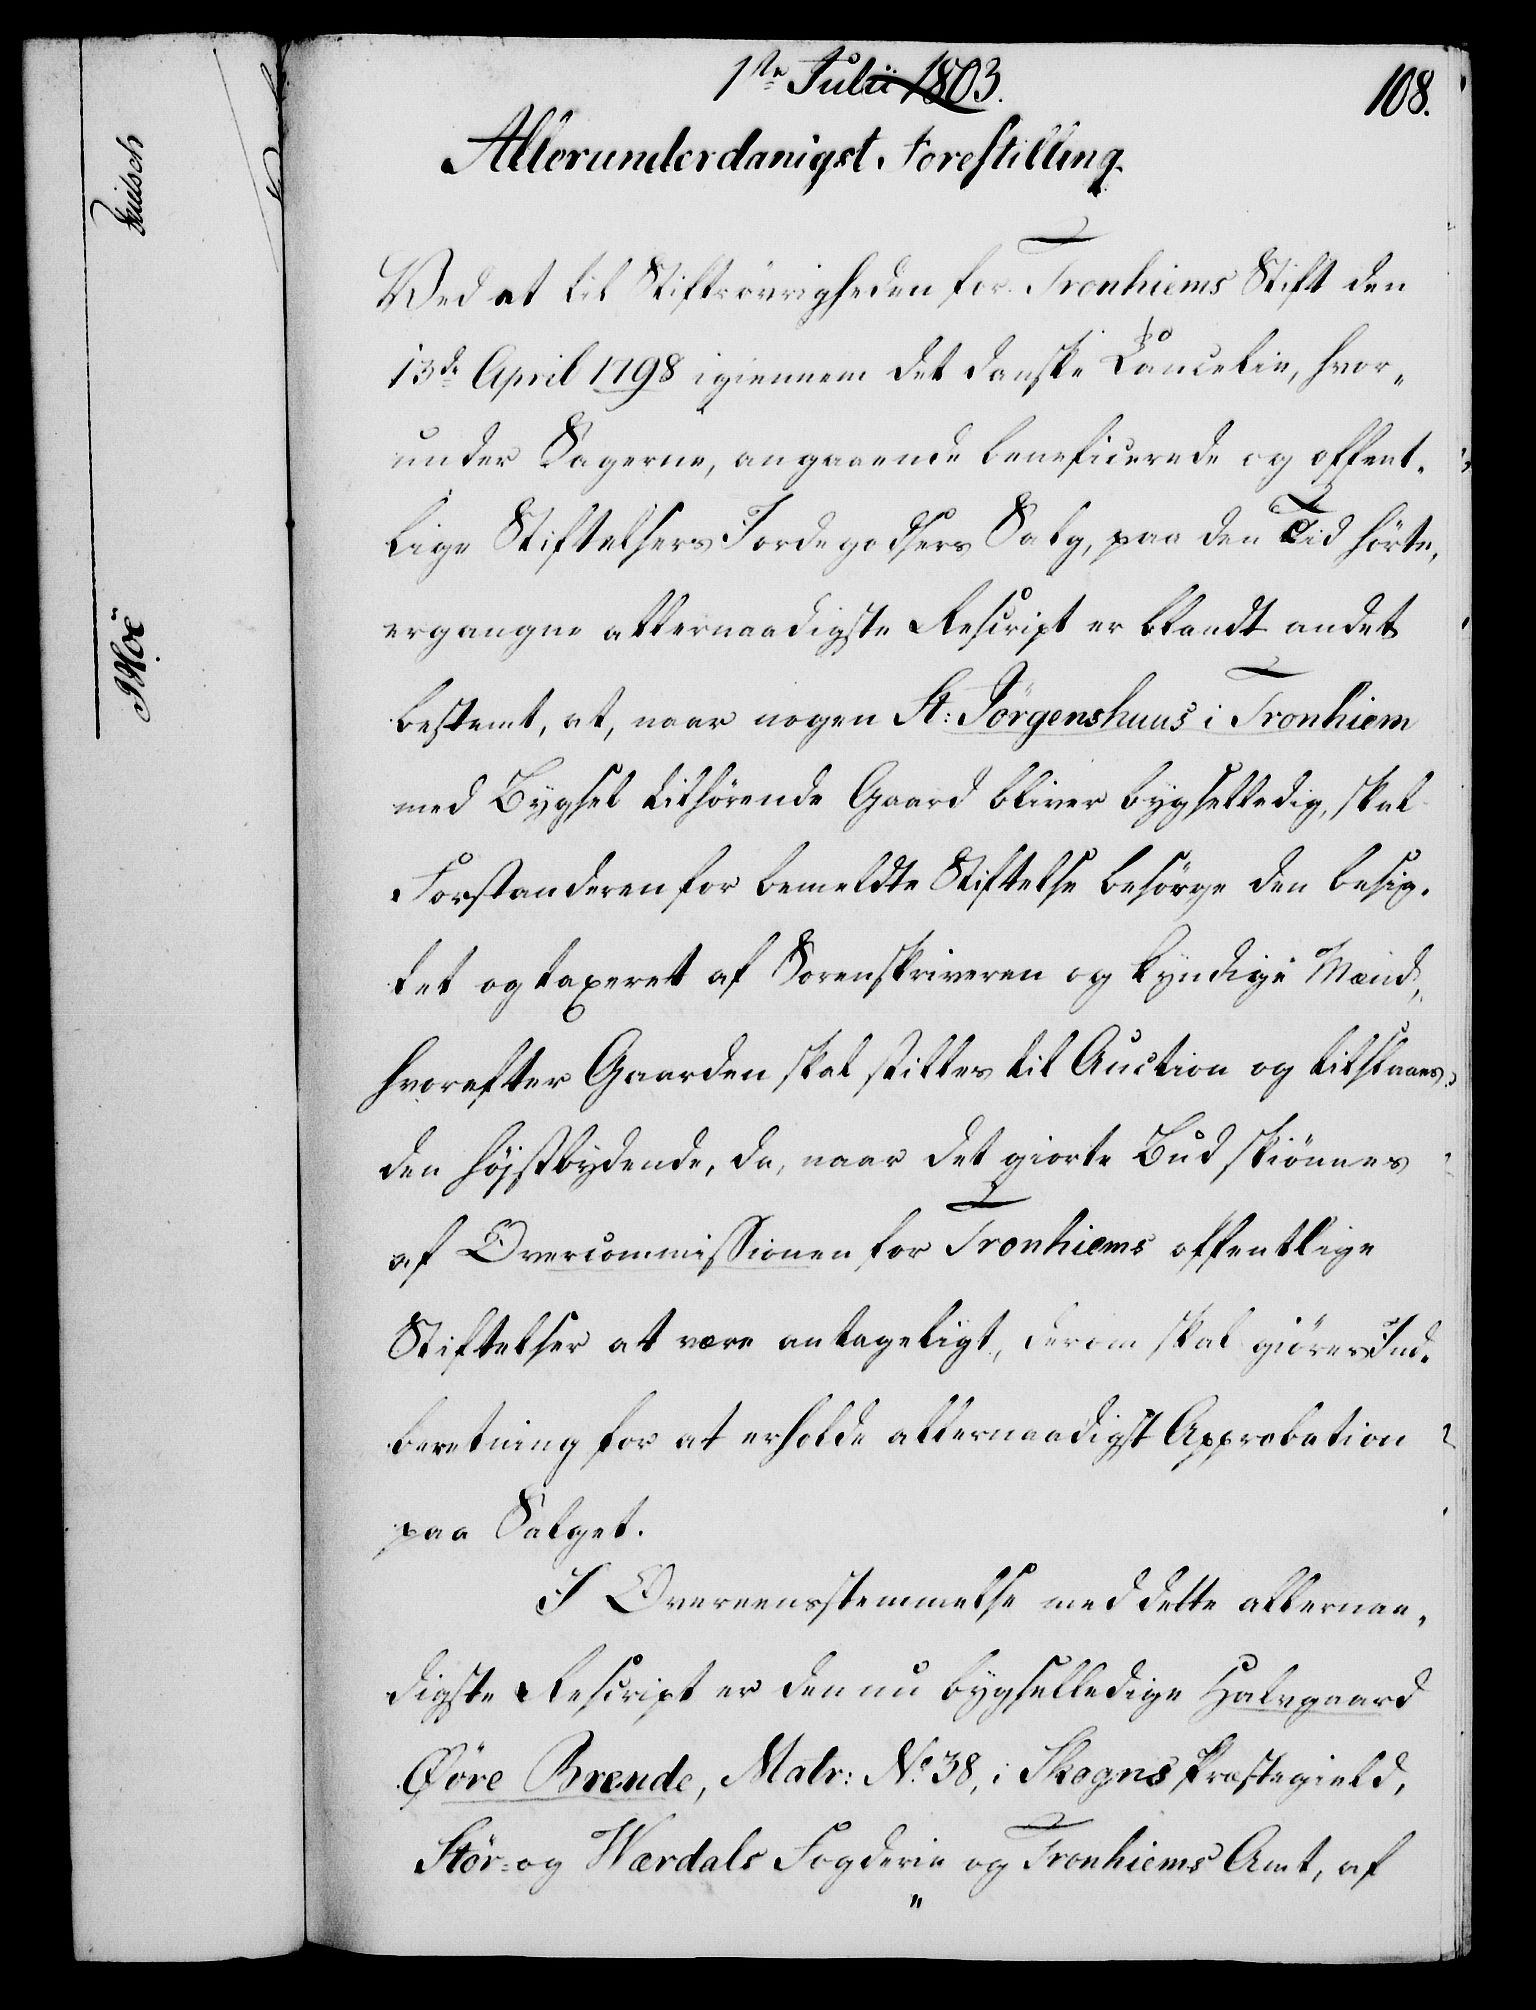 1te Julii 1803.
108.
Allerunderdanigst Forestilling.
Ved at til Stiftsøvrigheden for Tronhiems Stift den
13de April 1798 igiennem det danske Cancelie, hvor-
under Sagerne, angaaende beneficerede og offent-
lige Stiftelsers Jordegodsers Salg, paa den Tid hörte,
ergangne allernaadigste Rescript er blandt andet
bestemt, at, naar nogen St: Jörgenshuus i Tronhiem
med Bygsel tilhörende Gaard bliver bygselledig, skal
Forstanderen for bemeldte Stiftelse besörge den besig-
tet og taxeret af Sorenskriveren og kyndige Mænd,
hvorefter Gaarden skal stilles til Auction og tilslaaes
den höistbydende, da, naar det giorte Bud skiönnes
af Overcommissionen for Tronhiems offentlige
Stiftelser at være antageligt, derom skal giöres Ind-
beretning for at erholde allernaadigst Approbation
paa Salget.
I Overeensstemmelse med dette allernaa-
digste Rescript er den nu bygselledige Halvgaard
Øöre Brende, Matr: No 38, i Skogns Præstegield,
Stör- og Værdals Fogderie og Tronhiems Amt, af
"
Knisch
PHöe